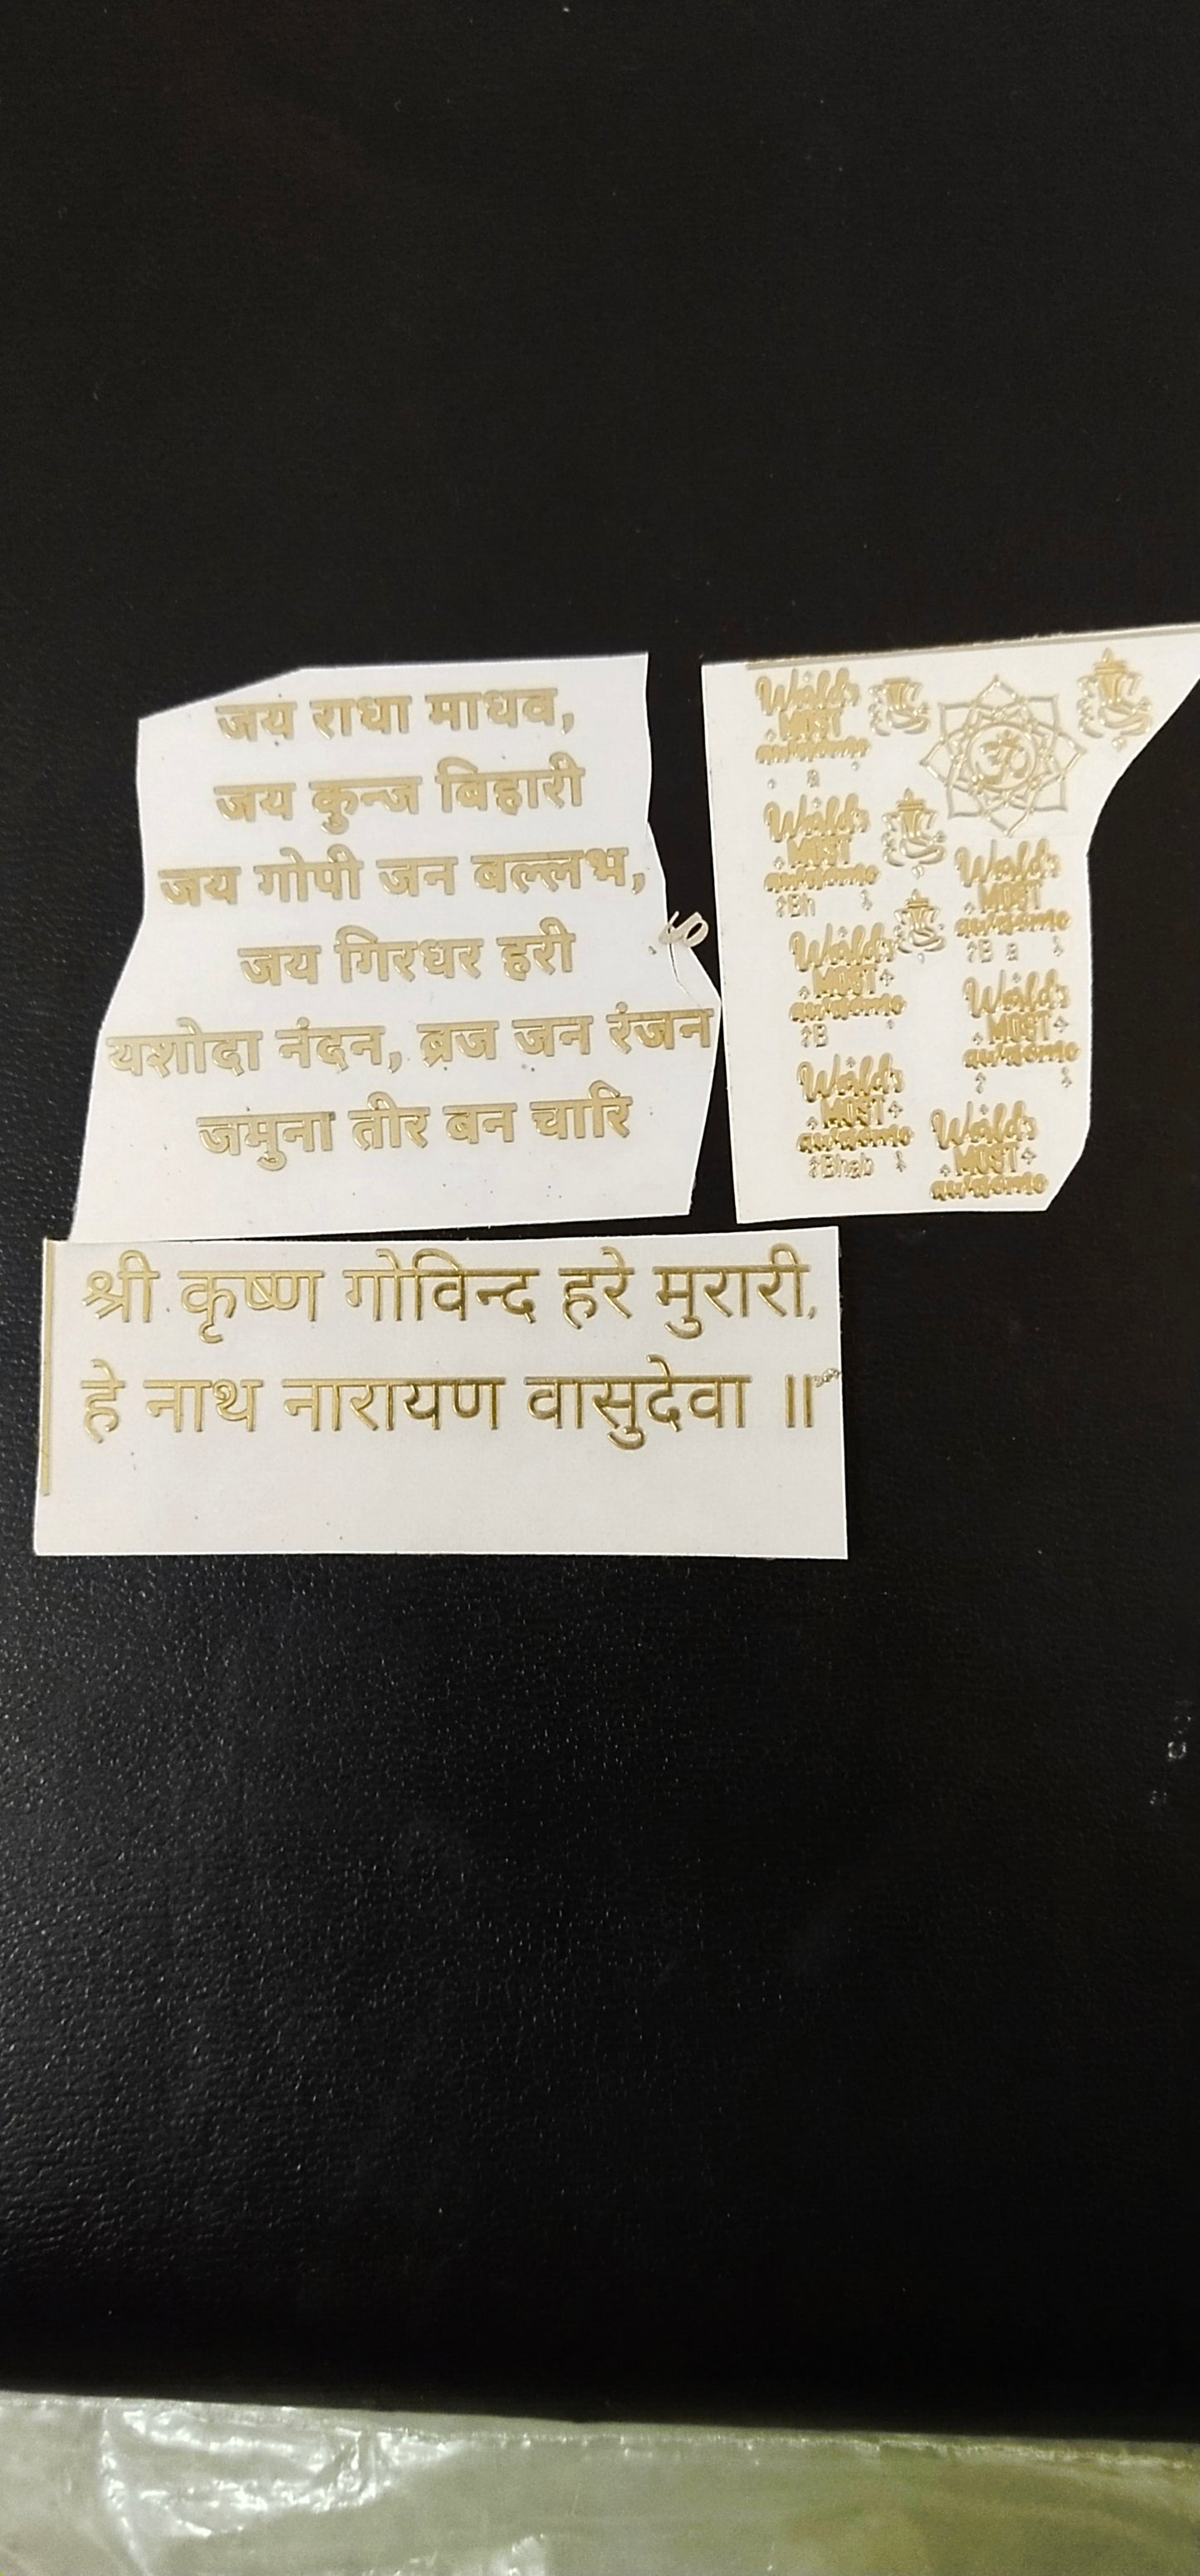 जय राधा माधव,
जय कुन्ज बिहारी
जय गोपी जन बल्लभ,
जय गिरधर हरी
यशोदा नंदन, ब्रज जन रंजन
जमुना तीर बन चारि
श्री कृष्ण गोविन्द हरे मुरारी,
हे नाथ नारायण वासुदेवा ॥
World's
MOST
awesome
a
World's
MOST
awesome
Bh
World's
MOST
awesome
B
World's
MOST
awesome
Bhab
ॐ
World's
MOST
awesome
B a
World's
MOST
awesome
World's
MOST
awesome